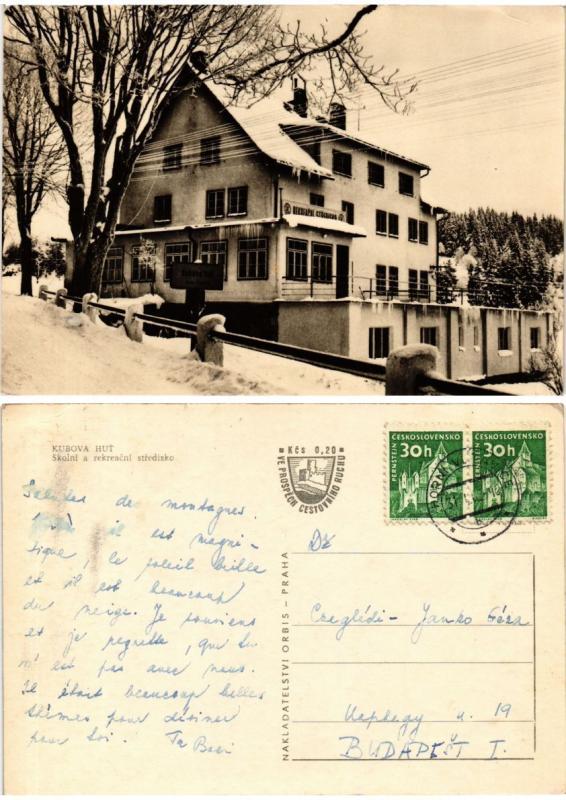 REKREAČNÍ STŘEDISKO
KUBOVA HUŤ
Školní a rekreační středisko
Kčs 0,20
VE PROSPĚCH CESTOVNÍHO RUCHU
PERNSTEJN ČESKOSLOVENSKO
30h
PERNSTEJN ČESKOSLOVENSKO
30h
HORNÍ
NAKLADATELSTVÍ ORBIS – PRAHA
Salutes de montagnes.
il est magni-
tique, le soleil brille
et il est beaucoup
du neige. Je souviens
et je regrette, que tu
n'est pas avec nous.
Il était beaucoup belles
thèmes pour désiner
pour toi. Ta Bori
Dr
Czeglédi - Jankó Géza
Naphegy u. 19
BUDAPEŠT I.